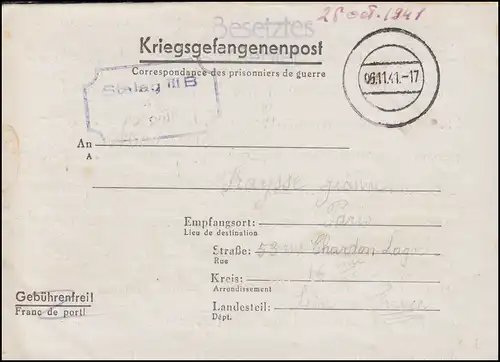 Besetztes
28 oct. 1941
Kriegsgefangenenpost
Correspondance des prisonniers de guerre
06.11.41.-17
Stalag III B
An
A
Empfangsort: Paris
Lieu de destination
Straße: 53 rue Chardon Lag
Rue
Kreis: 16
Arrondissement
Gebührenfrei!
Landesteil:
Franc de port!
Dépt.